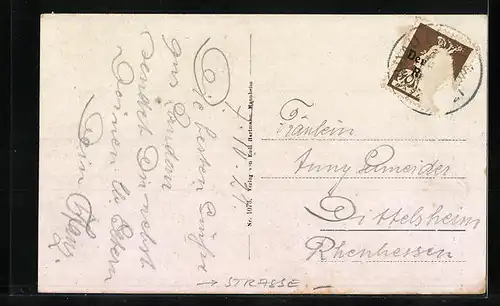 Die besten Grüße
aus Landau
sendet Dir nebst
Deinen lb. Eltern
Dein Hans.
Nr. 1078. Verlag von Emil Hartmann, Mannheim
Fräulein
Anny Schneider
Dittelsheim
Rhenhessen
→ STRASSE –